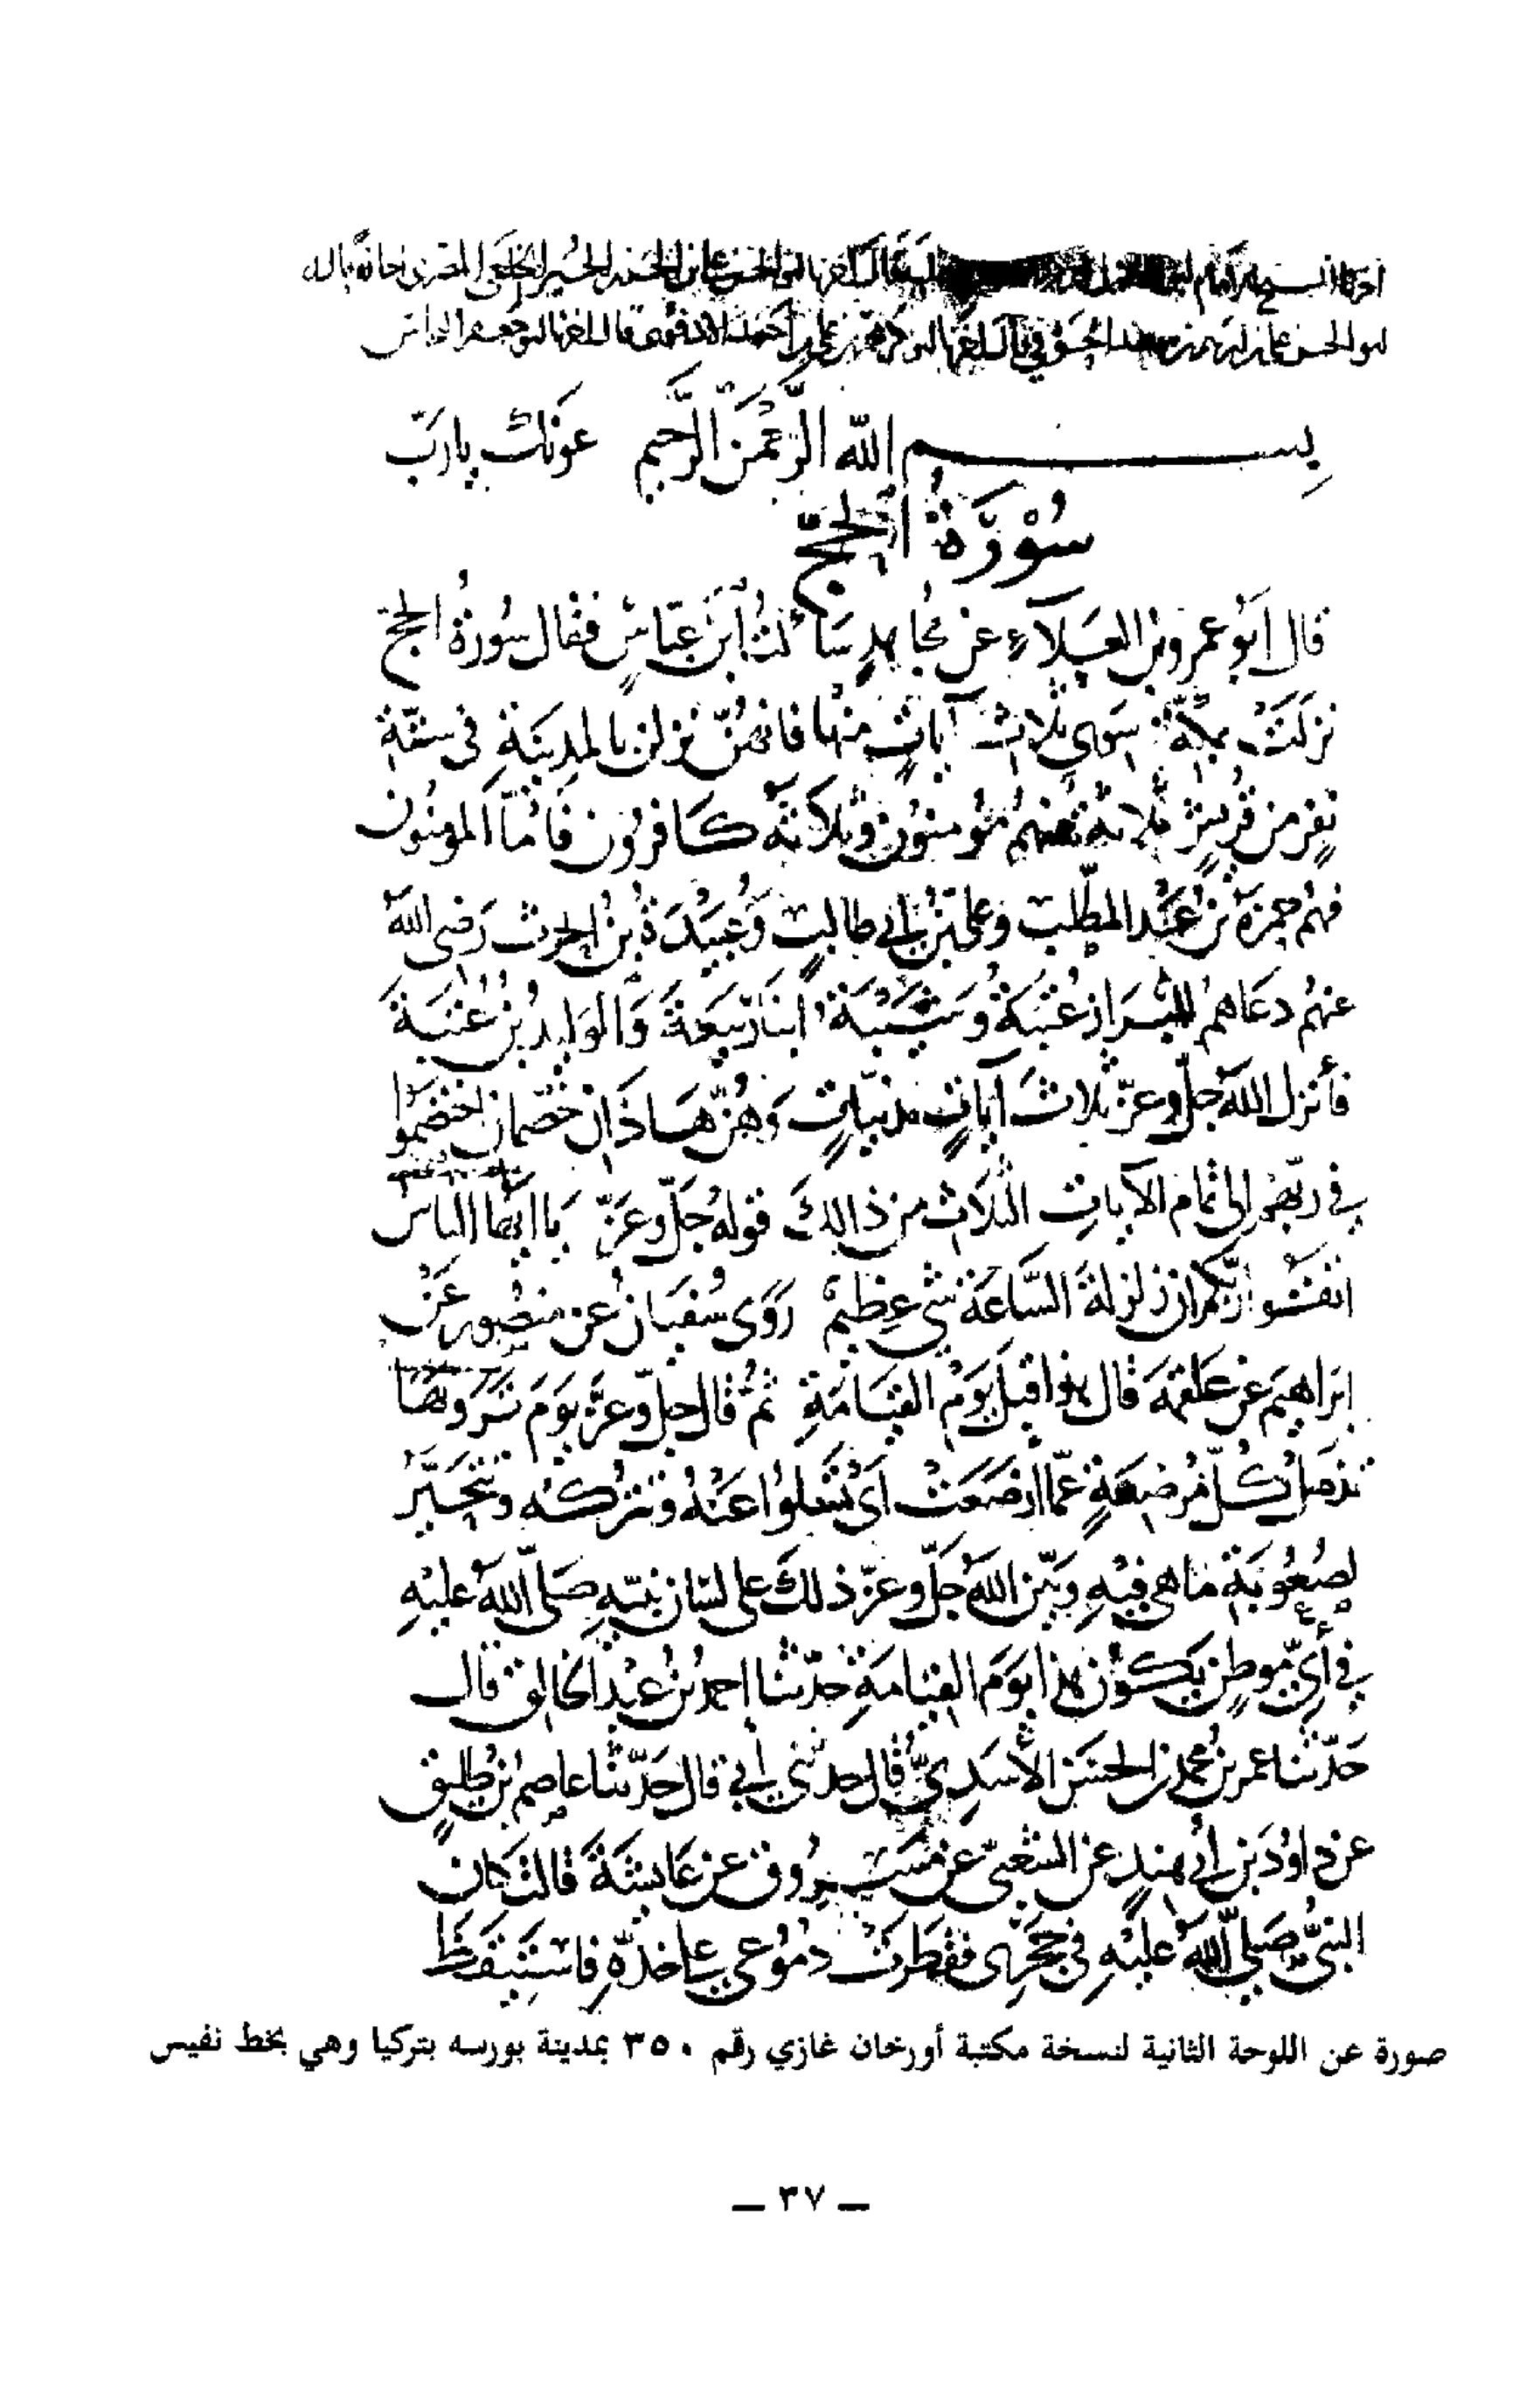 بسم الله الرحمن الرحيم عونك يا رب
سُوْرَةُ الحَجّ
قال أبو عمرو بن العَلَآءِ عن مجاهدٍ سَأَلتُ ابنَ عبّاسٍ فقال سُورةُ الحجّ
نزلَتْ بمكّةَ سِوَى ثلاث آياتٍ منها فإنهُنّ نزلن بالمدِينَةِ في ستّة
نفرٍ من قُريشٍ ثلاثةٌ منهم مُؤمنوُن وثلاثةٌ كافرُون فأمّا المومِنُون
فهُم حمزةُ بنُ عبْد المطّلب وعلىّ بنُ أبي طالبٍ وَعُبَيْدَةُ بنُ الحرث رَضِى اللهُ
عنهُم دعَاهُم للبِرَاز عُتْبَةُ وَشَيْبَةُ ابنا رَبيعَةَ وَالوَليدُ بنُ عُتْبَةَ
فأنزل اللهُ جلّ وعزّ ثلاثَ آياتٍ مدنيّاتٍ وَهُنّ هَاذَانِ خَصْمان اختصَمُوا
في ربّهم إلى تمام الآياتِ الثلَاث من ذالك قولهُ جَلّ وعَزّ يَا ايها الناس
اتقُوا ربّكم ان زلزلةَ السَّاعَة شىء عظِيمٌ رَوَى سُفيَانُ عن منصُور عَنْ
إبراهيمَ عن عَلقمةَ قال هذا قبلَ يَوْم القيَامَةِ ثمُ قال جلّ وعزّ يَومَ تَرَوْنَهَا
تذهلُ كُلّ مُرضعَةٍ عمّا أرضَعَتْ أيْ تسْلوُا عَنْهُ وتتْرُكُه وتتحَيَّرُ
لصُعُوبَة مَا هي فيْهِ وَبيّن اللهُ جلّ وعزّ ذلك على لسَان نبيّهِ صَلّى اللهُ عليْهِ
في أيّ موطنٍ يَكُونُ هذا يَومَ القيَامَةِ حدّثنا احمدُ بنُ عبْد الخالق قال
حَدّثنا عمر بنُ محمد بن الحسَن الأسَدِيّ قال حدّثني أبي قال حَدّثنا عاصم بنُ طليقٍ
عن داوُدَ بن أبي هِندٍ عن الشعبيّ عن مَسْرُوق عن عَايشَةَ قالت كان
النبيُّ صَلى اللهُ عليْهِ في حَجْرى فقطرَتْ دمُوُعي على خدّهِ فاسْتَيْقَظَ
صورة عن اللوحة الثانية لنسخة مكتبة أورخان غازي رقم ٣٥٠ بمدينة بورسه بتركيا وهي بخط نفيس
— ٣٧ —